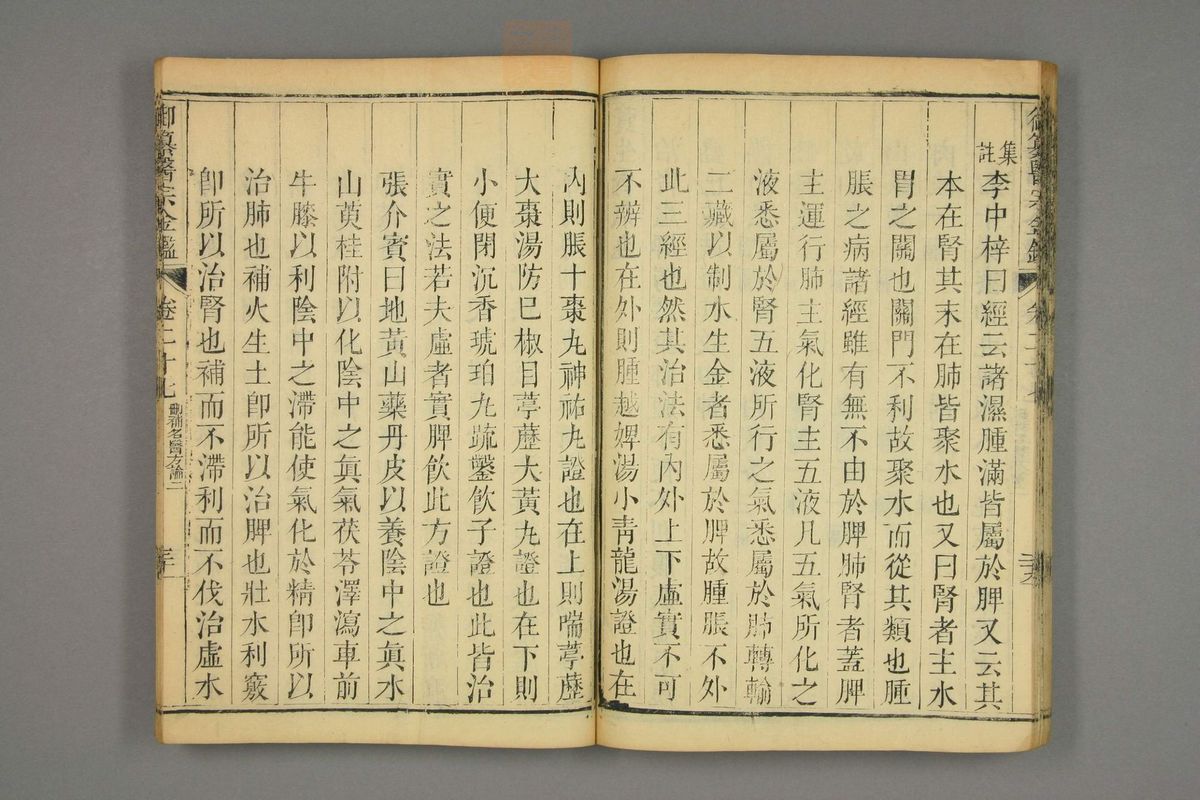 御纂醫宗金鑑
集註李中梓曰經云諸濕腫滿皆屬於脾又云其
本在腎其末在肺皆聚水也又曰腎者主水
胃之關也關門不利故聚水而從其類也腫
脹之病諸經雖有無不由於脾肺腎者蓋脾
主運行肺主氣化腎主五液凡五氣所化之
液悉屬於腎五液所行之氣悉屬於肺轉輸
二藏以制水生金者悉屬於脾故腫脹不外
此三經也然其治法有內外上下虛實不可
不辨也在外則腫越婢湯小靑龍湯證也在
內則脹十棗丸神祐丸證也在上則喘葶藶
大棗湯防巳椒目葶藶大黃丸證也在下則
小便閉沉香琥珀丸疏鑿飲子證也此皆治
實之法若夫虛者實脾飲此方證也
張介賓曰地黃山藥丹皮以養陰中之眞水
山萸桂附以化陰中之眞氣茯苓澤瀉車前
牛膝以利陰中之滯能使氣化於精卽所以
治肺也補火生土卽所以治脾也壯水利竅
卽所以治腎也補而不滯利而不伐治虛水
御纂醫宗金鑑
卷二十七
刪補名醫方論二